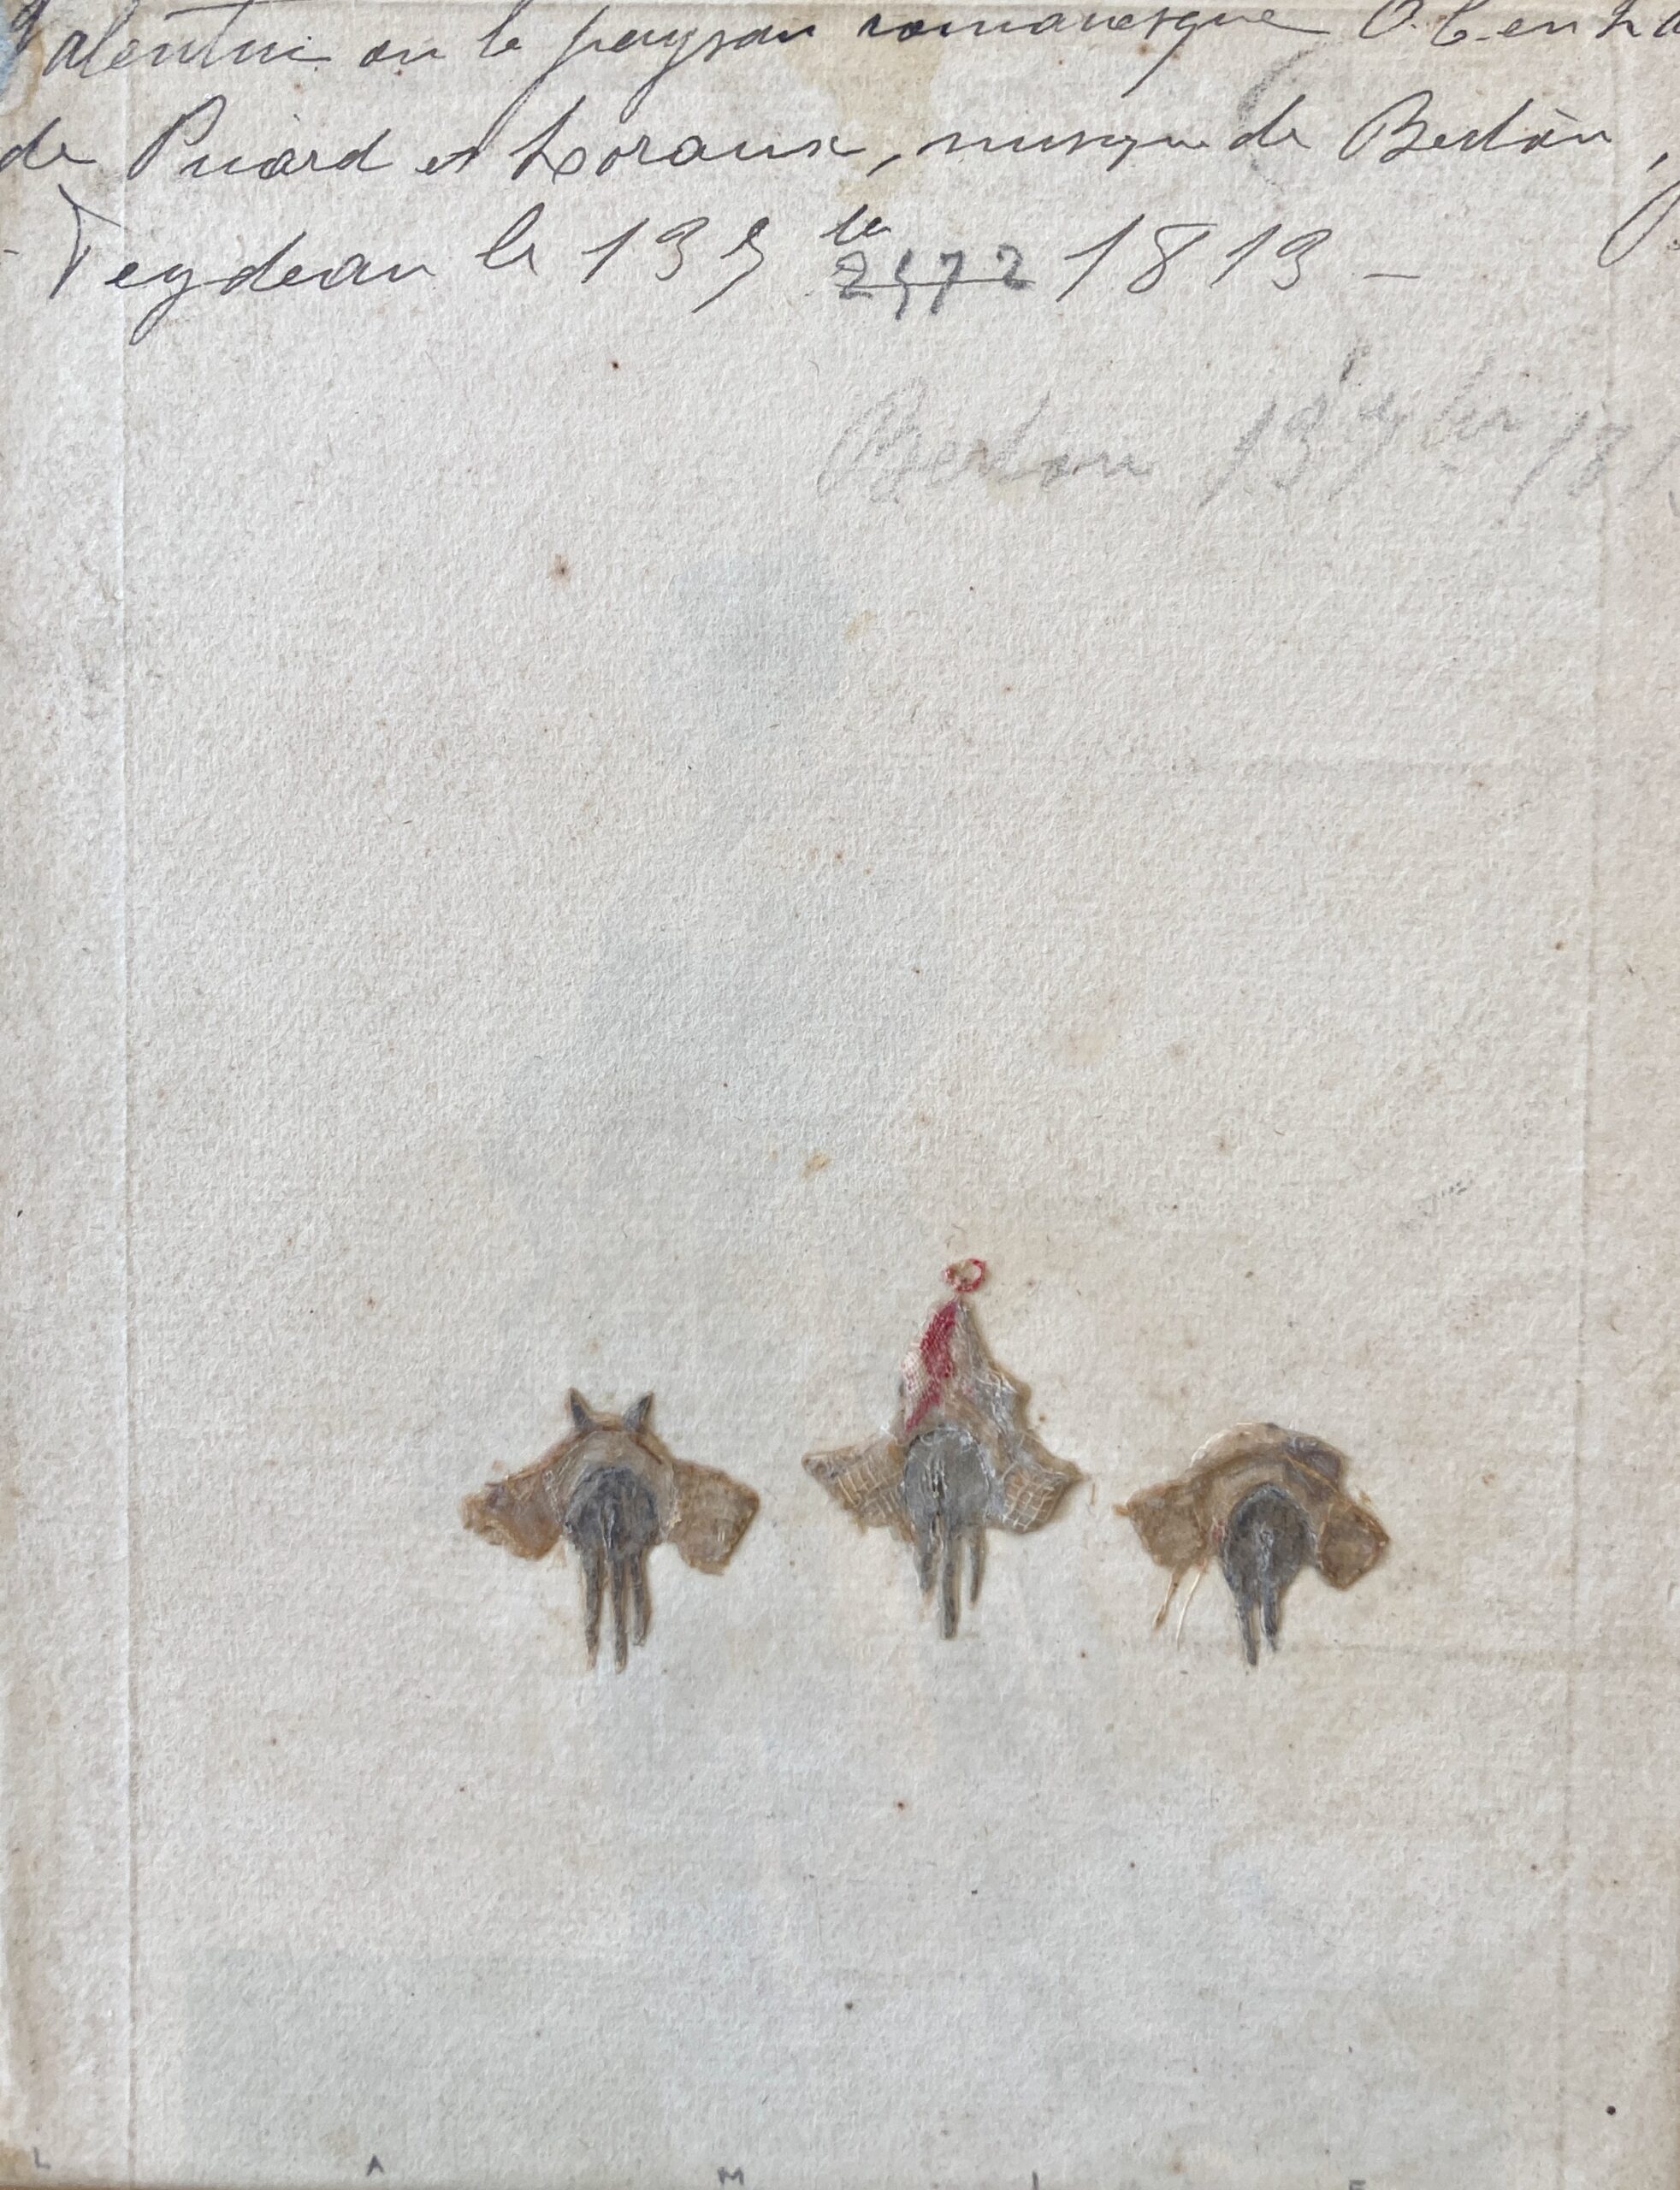 Valentin ou le paysan romanesque O.C. en
de Picard et Loraux, musique de Berton,
- Feydeau le 13 9bre 1813 -
2472
Berton 13
L A M I E